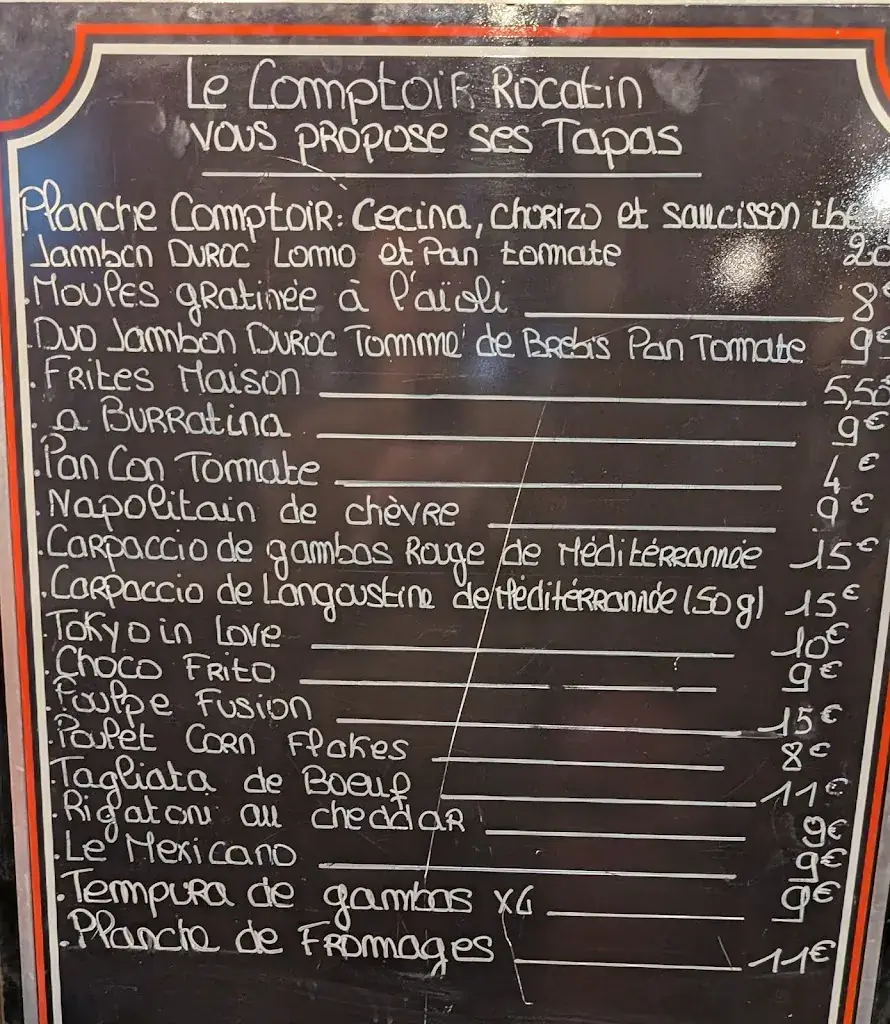 Le Comptoir Rocatin
vous propose ses Tapas
Planche Comptoir: Cecina, chorizo et saucisson
Jambon Duroc Lomo et Pan tomate 20
.Moules gratinée à l'aïoli 8€
.Duo Jambon Duroc Tomme de Brebis Pan Tomate 9€
.Frites Maison 5,50
.a Burratina 9€
.Pan Con Tomate 4€
.Napolitain de chèvre 9€
.Carpaccio de gambas Rouge de Méditérrannée 15€
.Carpaccio de Langoustine de Méditérrannée (50g) 15€
.Tokyo in Love 10€
.Choco Frito 9€
.Poulpe Fusion 15€
.Poulet Corn Flakes 8€
.Tagliata de Boeuf 11€
.Rigatoni au cheddar 9€
.Le Mexicano 9€
.Tempura de gambas 9€
.Planche de Fromages 11€